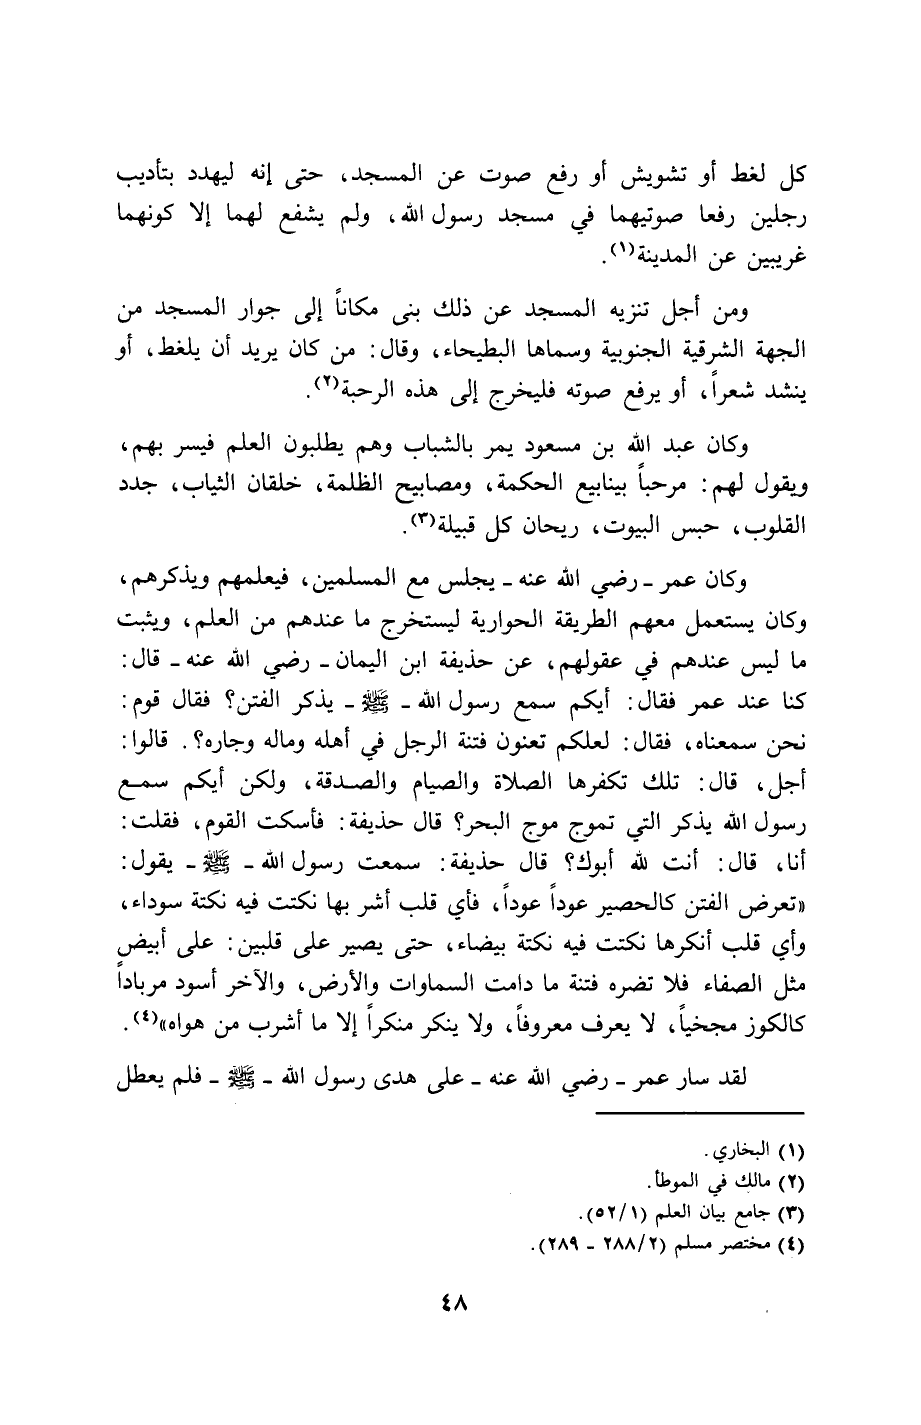 كل لغط أو تشويش أو رفع صوت عن المسجد، حتى إنه ليهدد بتأديب
رجلين رفعا صوتيهما في مسجد رسول الله، ولم يشفع لهما إلا كونهما
غريبين عن المدينة(١).
ومن أجل تنزيه المسجد عن ذلك بنى مكاناً إلى جوار المسجد من
الجهة الشرقية الجنوبية وسماها البطيحاء، وقال: من كان يريد أن يلغط، أو
ينشد شعراً، أو يرفع صوته فليخرج إلى هذه الرحبة(٢).
وكان عبد الله بن مسعود يمر بالشباب وهم يطلبون العلم فيسر بهم،
ويقول لهم: مرحباً بينابيع الحكمة، ومصابيح الظلمة، خلقان الثياب، جدد
القلوب، حبس البيوت، ريحان كل قبيلة(٣).
وكان عمر ـ رضي الله عنه ـ يجلس مع المسلمين، فيعلمهم ويذكرهم،
وكان يستعمل معهم الطريقة الحوارية ليستخرج ما عندهم من العلم، ويثبت
ما ليس عندهم في عقولهم، عن حذيفة ابن اليمان ـ رضي الله عنه ـ قال:
كنا عند عمر فقال: أيكم سمع رسول الله ـ ﷺ ـ يذكر الفتن؟ فقال قوم:
نحن سمعناه، فقال: لعلكم تعنون فتنة الرجل في أهله وماله وجاره؟. قالوا:
أجل، قال: تلك تكفرها الصلاة والصيام والصدقة، ولكن أيكم سمع
رسول الله يذكر التي تموج موج البحر؟ قال حذيفة: فأسكت القوم، فقلت:
أنا، قال: أنت لله أبوك؟ قال حذيفة: سمعت رسول الله ـ ﷺ ـ يقول:
«تعرض الفتن كالحصير عوداً عوداً، فأي قلب أشر بها نكتت فيه نكتة سوداء،
وأي قلب أنكرها نكتت فيه نكتة بيضاء، حتى يصير على قلبين: على أبيض
مثل الصفاء فلا تضره فتنة ما دامت السماوات والأرض، والآخر أسود مرباداً
كالكوز مجخياً، لا يعرف معروفاً، ولا ينكر منكراً إلا ما أشرب من هواه»(٤).
لقد سار عمر ـ رضي الله عنه ـ على هدى رسول الله ـ ﷺ ـ فلم يعطل
(١) البخاري.
(٢) مالك في الموطأ.
(٣) جامع بيان العلم (٥٢/١).
(٤) مختصر مسلم (٢٨٨/٢ ـ ٢٨٩).
٤٨